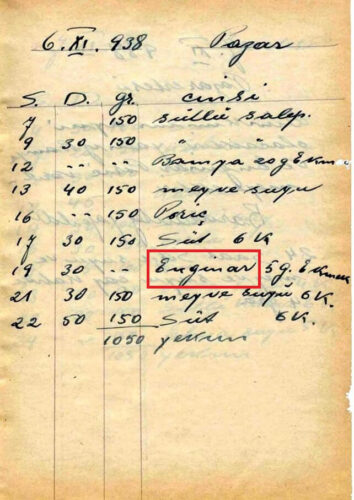 6. XI. 938 Pazar
S. D. gr. cinsi
7 150 sütlü salep.
9 30 150 " "
12 -- -- Bamya 20 g Ekm
13 40 150 meyve suyu
16 -- 150 Poriç
17 30 150 Süt 6 K
19 30 -- Enginar 5 g. Ekmek
21 30 150 meyve suyu 6 K.
22 50 150 Süt 6 K.
1050 yekun